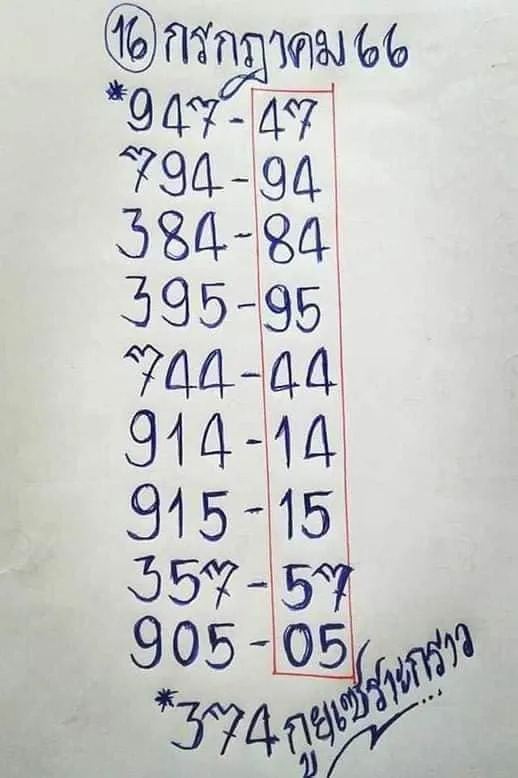 16 กรกฎาคม 66
*947-47
794-94
384-84
395-95
744-44
914-14
915-15
357-57
905-05
*374 กูยเซราะกราว...